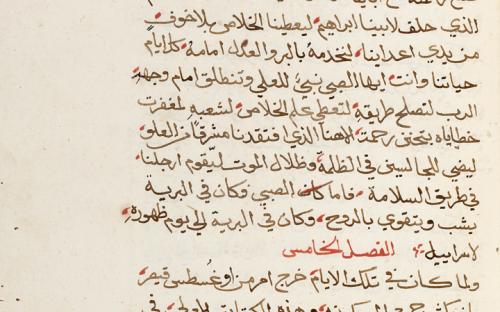 الذي حلف لابينا ابراهيم ليعطينا الخلاص بلا خوف
من يدي اعداينا لنخدمه بالبر والعدل امامه كل ايام
حياتنا وانت ايها الصبي نبي العلي وتنطلق امام وجه
الرب لتصلح طريقه لتعطي علم الخلاص لشعبه لمغفرت
خطاياه بتحنن رحمة الاهنا الذي افتقدنا مشرقا من العلو
ليضي للجالسين في الظلمة وظلال الموت ليقوم ارجلنا
في طريق السلامة فاما كان الصبي فكان في البرية
يشب ويتقوي بالروح وكان في البرية الى يوم ظهوره
لاسراييل الفصل الخامس
ولما كان في تلك الايام خرج امر من اوغسطس قيصر